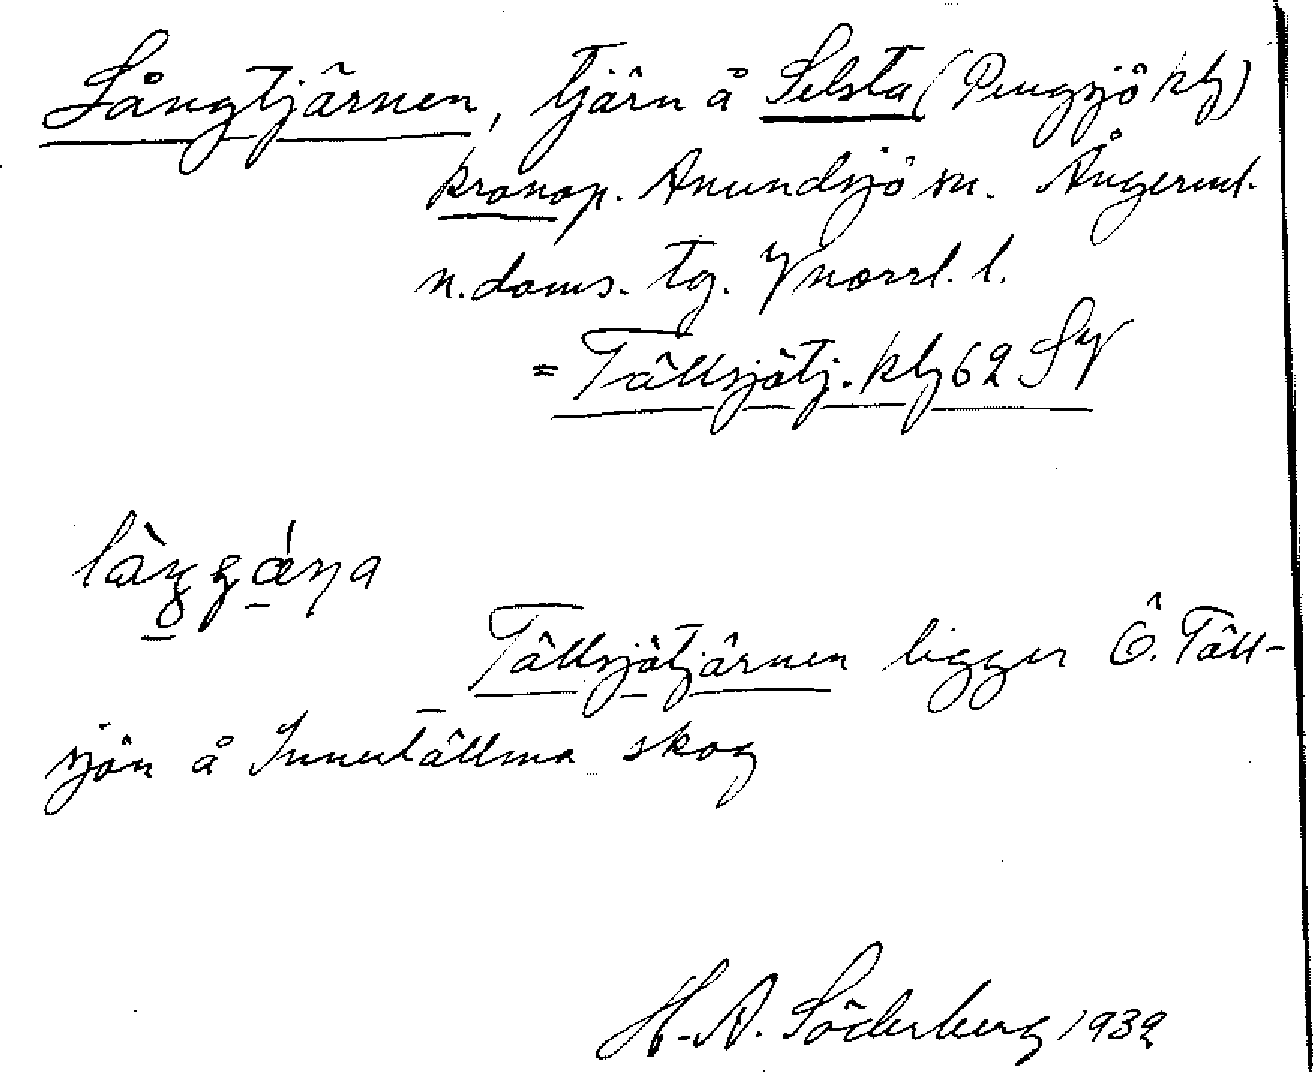 Långtjärnen, tjärn å Selsta (Pengsjö klg)
kronop. Anundsjö sn. Ångerml.
n. doms. tg. Y norrl. l.
= Tällsjötj. klg 62 SV
Tällsjötjärnen ligger Ö. Täll-
sjön å Innertällmo skog
H. A. Söderberg 1932